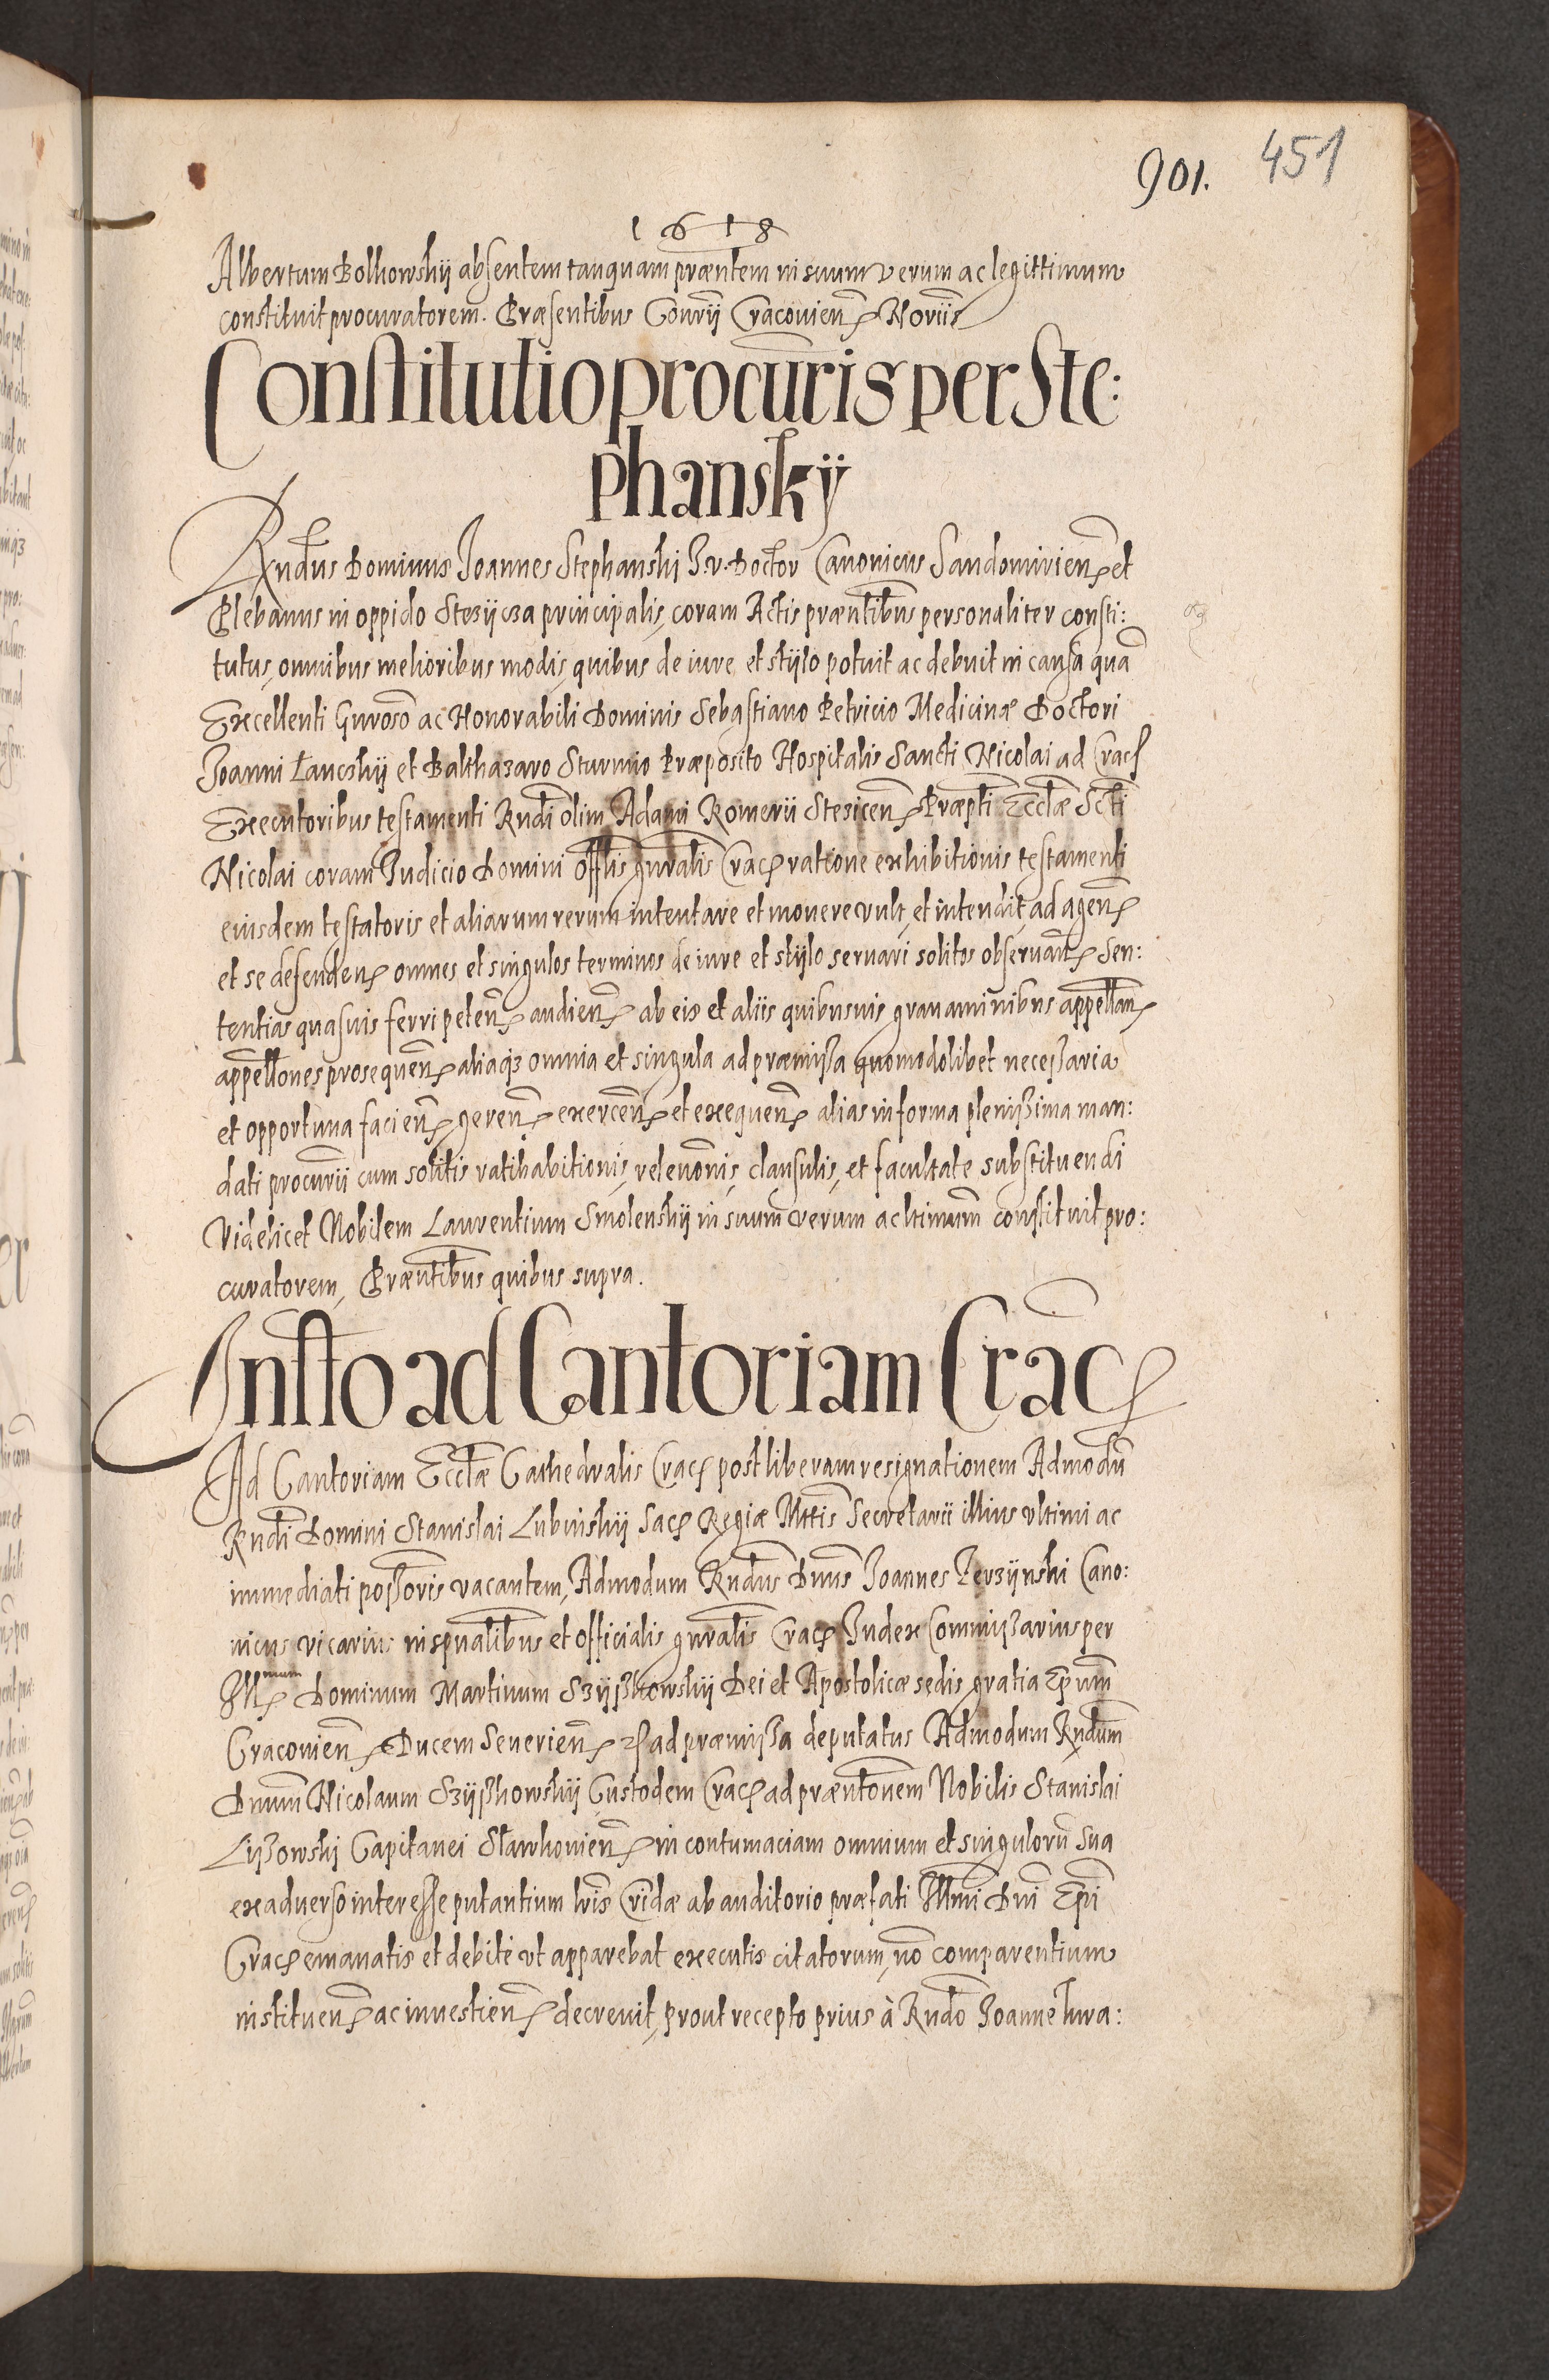 901. 451
1618
Albertum Bolkowskij absentem tanquam præntem in suum verum ac legittimum
constituit procuratorem. Præsentibus Consrij Cracovien Noriis
Constitutio procuris per Ste:
phanskÿ
Rndus Dominus Joannes Stephanski J.v. Doctor Canonicus Sandomirien et
Plebanus in oppido Stezijcza principalis, coram Actis præntibus personaliter consti:
tutus, omnibus melioribus modis, quibus de iure et stijlo potuit ac debuit in causa qua
Excellenti Gnroso ac Honorabili Dominis Sebastiano Petricio Medicinæ Doctori
Joanni Łancskij et Balthazaro Sturmio Præposito Hospitalis Sancti Nicolai ad Crac
Executoribus testamenti Rndi olim Adami Romerii Stesicen Præpti Ecclæ Scti
Nicolai coram Judicio Domini Offlis gnralis Crac ratione exhibitionis testamenti
eiusdem testatoris et aliarum rerum intentare et mouere vult, et intendit, ad agen
et se defenden omnes et singulos terminos de iure et stijlo seruari solitos obseruan Sen:
tentias quasuis ferri peten audien ab eis et aliis quibusuis grauaminibus appellan
appellones prosequen aliaqz omnia et singula ad præmißa quomodolibet neceßaria
et opportuna facien geren exercen et exequen alias in forma plenißima man:
dati procurii cum solitis ratihabitionis, releuonis, clausulis, et facultate substituendi
Videlicet Nobilem Laurentium Smolenskij in suum verum ac ltimum constituit pro:
curatorem, Præntibus quibus supra.
Jnstto ad Cantoriam Crac
Ad Cantoriam Ecclæ Cathedralis Crac post liberam resignationem Admodu
Rndi Domini Stanislai Lubinskij Sac Regiæ Mttis Secretarii illius vltimi ac
immediati poßoris vacantem, Admodum Rndus Dnus Joannes Ferzijnski Cano:
nicus vicarius in spualibus et officialis gnralis Crac Judex Commißarius per
Jll mum Dominum Martinum Szijßkowskij Dei et Apostolicæ sedis gratia Epum
Cracouien Ducem Seuerien ad præmißa deputatus Admodum Rndum
Dnum Nicolaum Szijßkowskij Custodem Crac ad præntonem Nobilis Stanislai
Lißowskj Capitanei Sławkouien in contumaciam omnium et singuloru sua
ex aduerso interesse putantium lris Cridæ ab auditorio præfati Jllmi Dni Epi
Crac emanatis et debite vt apparebat executis citatorum, no comparentium
instituen ac inuestien decreuit, prout recepto prius à Rndo Joanne Iura: